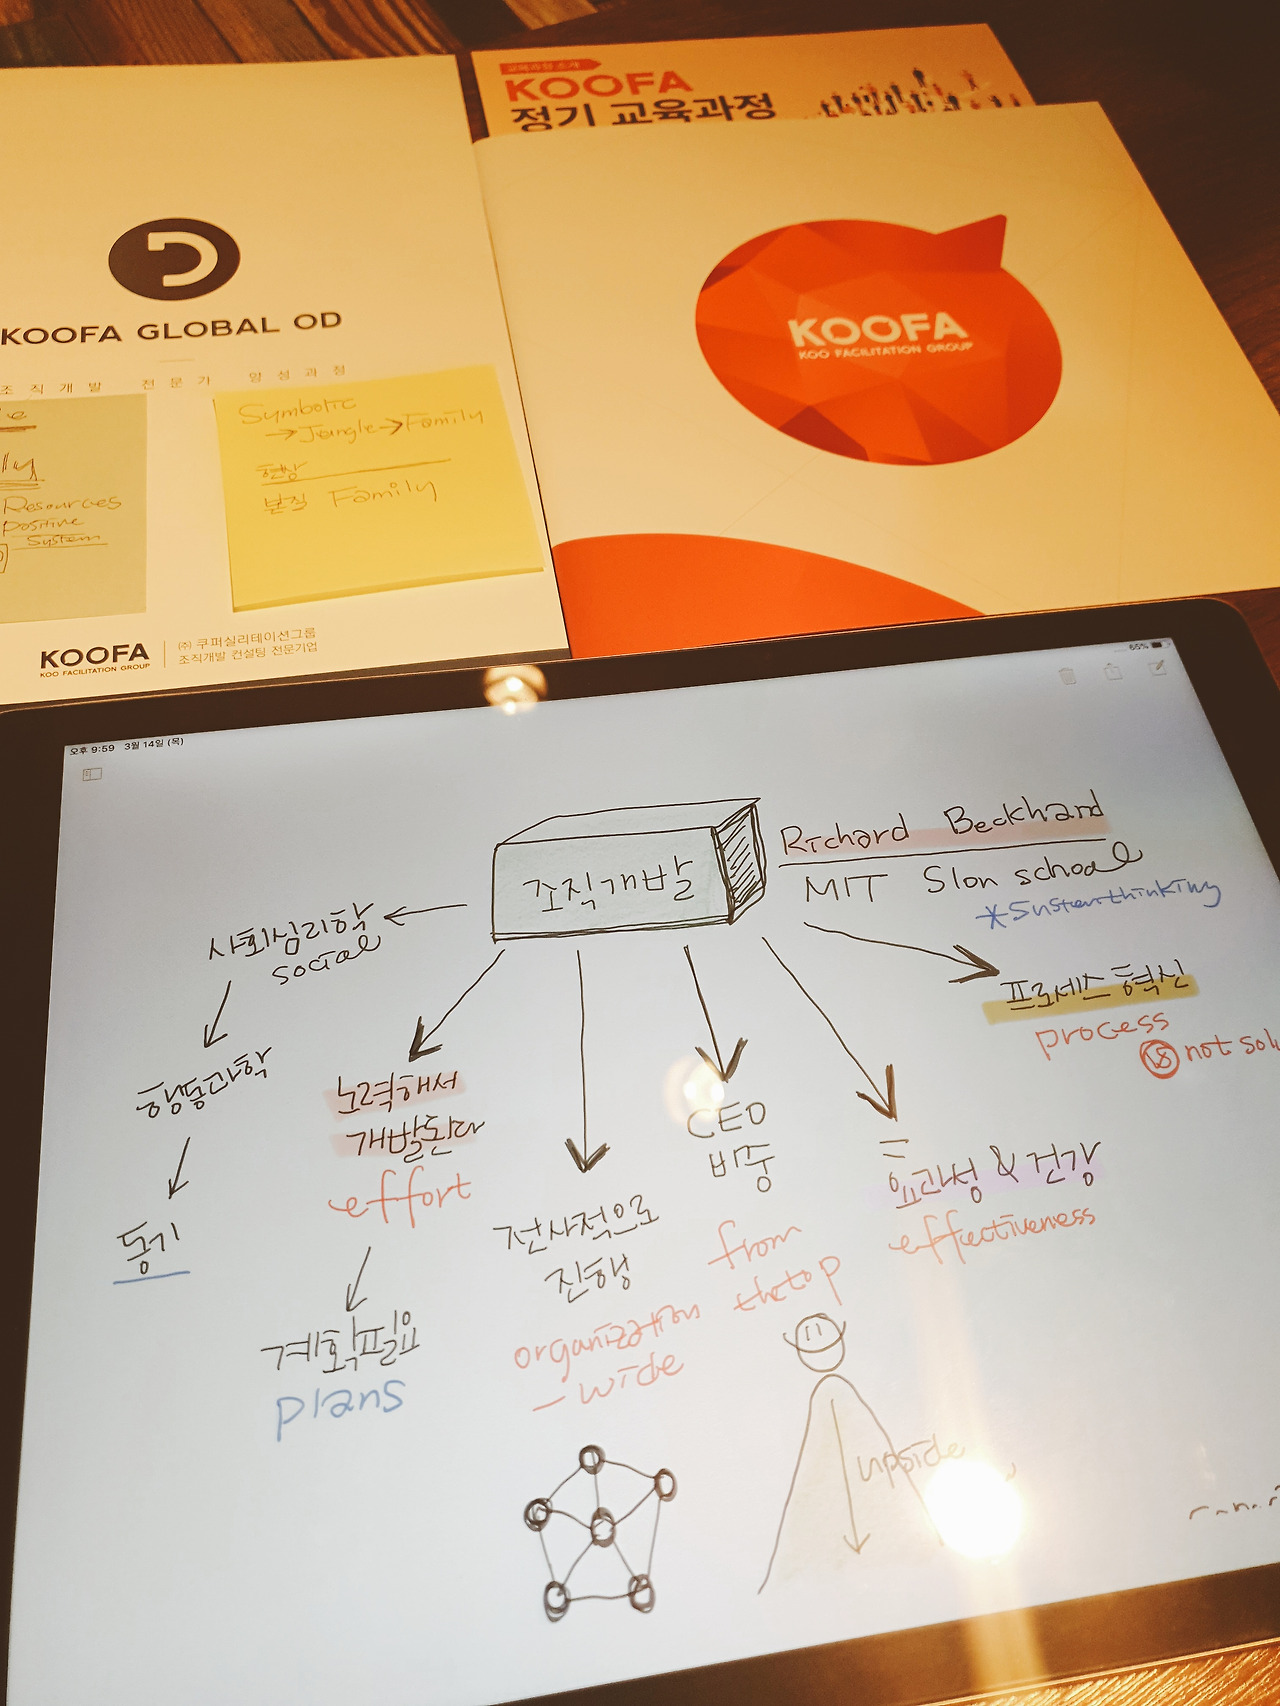 교육과정 소개
KOOFA
정기 교육과정
KOOFA
KOO FACILITATION GROUP
KOOFA GLOBAL OD
조직개발 전문가 양성과정
Resources
Positive
System
Symbolic
→Jungle→Family
현상
본질 Family
KOOFA
KOO FACILITATION GROUP
㈜ 쿠퍼실리테이션그룹
조직개발 컨설팅 전문기업
오후 9:59 3월 14일 (목)
65%
조직개발
Richard Beckhard
MIT Slon school
*Systemthinking
사회심리학
social
행동과학
동기
노력해서
개발된다
effort
계획필요
plans
전사적으로
진행
organization
-wide
CEO
비중
from
thetop
upside
효과성 & 건강
effectiveness
프로세스 혁신
process
VS not